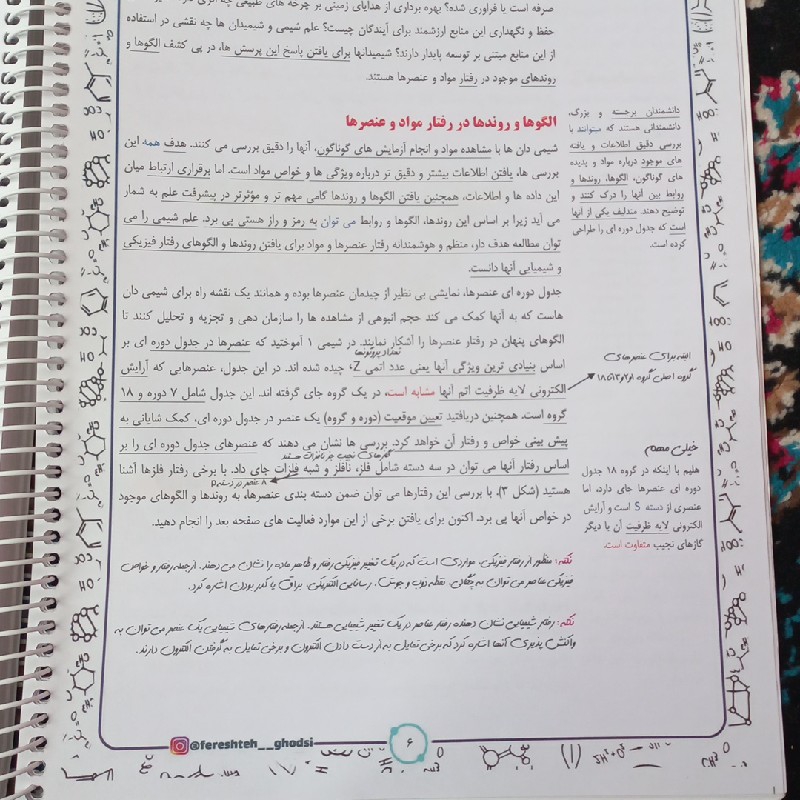 صرفه است یا فراوری شده؟ بهره برداری از هدایای زمینی بر چرخه های طبیعی چه
حفظ و نگهداری این منابع ارزشمند برای آیندگان چیست؟ علم شیمی و شیمیدان ها چه نقشی در استفاده
از این منابع مبتنی بر توسعه پایدار دارند؟ شیمیدانها برای یافتن پاسخ این پرسش ها، در پی کشف الگوها و
روندهای موجود در رفتار مواد و عنصرها هستند.
الگوها و روندها در رفتار مواد و عنصرها
شیمی دان ها با مشاهده مواد و انجام آزمایش های گوناگون، آنها را دقیق بررسی می کنند. هدف همه این
بررسی ها، یافتن اطلاعات بیشتر و دقیق تر درباره ویژگی ها و خواص مواد است. اما برقراری ارتباط میان
این داده ها و اطلاعات، همچنین یافتن الگوها و روندها گامی مهم تر و مؤثرتر در پیشرفت علم به شمار
می آید زیرا بر اساس این روندها، الگوها و روابط می توان به رمز و راز هستی پی برد. علم شیمی را می
توان مطالعه هدف دار، منظم و هوشمندانه رفتار عنصرها و مواد برای یافتن روندها و الگوهای رفتار فیزیکی
و شیمیایی آنها دانست.
دانشمندان برجسته و بزرگ،
دانشمندانی هستند که میتوانند با
بررسی دقیق اطلاعات و یافته
های موجود درباره مواد و پدیده
های گوناگون، الگوها، روندها و
روابط بین آنها را درک کنند و
توضیح دهند مندلیف یکی از آنها
است که جدول دوره ای را طراحی
کرده است.
جدول دوره ای عنصرها، نمایشی بی نظیر از چیدمان عنصرها بوده و همانند یک نقشه راه برای شیمی دان
هاست که به آنها کمک می کند حجم انبوهی از مشاهده ها را سازمان دهی و تجزیه و تحلیل کنند تا
الگوهای پنهان در رفتار عنصرها را آشکار نمایند. در شیمی ۱ آموختید که عنصرها در جدول دوره ای بر
تعداد پروتونها
اساس بنیادی ترین ویژگی آنها یعنی عدد اتمی Z، چیده شده اند. در این جدول، عنصرهایی که آرایش
الکترونی لایه ظرفیت اتم آنها مشابه است، در یک گروه جای گرفته اند. این جدول شامل ۷ دوره و ۱۸
گروه است. همچنین دریافتید تعیین موقعیت (دوره و گروه) یک عنصر در جدول دوره ای، کمک شایانی به
پیش بینی خواص و رفتار آن خواهد کرد. بررسی ها نشان می دهند که عنصرهای جدول دوره ای را بر
گازهای نجیب جز نافلزات هستند
اساس رفتار آنها می توان در سه دسته شامل فلز، نافلز و شبه فلزات جای داد. با برخی رفتار فلزها آشنا
هستید (شکل ۳). با بررسی این رفتارها می توان ضمن دسته بندی عنصرها، به روندها و الگوهای موجود
در خواص آنها پی برد. اکنون برای یافتن برخی از این موارد فعالیت های صفحه بعد را انجام دهید.
البته برای عنصرهای
خیلی مهم
هلیم با اینکه در گروه ۱۸ جدول
دوره ای عنصرها جای دارد، اما
عنصری از دسته S است و آرایش
الکترونی لایه ظرفیت آن با دیگر
گازهای نجیب متفاوت است.
نکته: منظور از رفتار فیزیکی، مواردی است که در یک تغییر فیزیکی رفتار و ظاهر ماده را نشان می دهند. از جمله رفتار و خواص
فیزیکی عناصر می توان به چگالی، نقطه ذوب و جوش، رسانایی الکتریکی، براق یا کدر بودن اشاره کرد.
نکته: رفتار شیمیایی نشان دهنده رفتار عناصر در یک تغییر شیمیایی هستند. از جمله رفتارهای شیمیایی یک عنصر می توان به
واکنش پذیری آنها اشاره کرد که برخی تمایل به از دست دادن الکترون و برخی تمایل به گرفتن الکترون دارند.
@fereshteh__ghodsi
۶